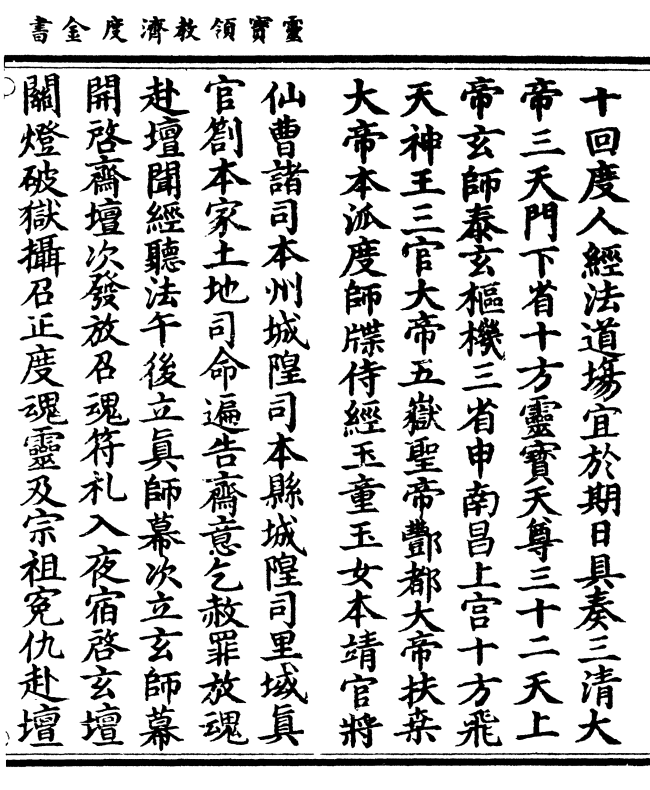 靈寶領教濟度金書
十回度人經法道場宜於期日具奏三清大
帝三天門下省十方靈寶天尊三十二天上
帝玄師泰玄樞機三省申南昌上宮十方飛
天神王三官大帝五嶽聖帝酆都大帝扶桒
大帝本派度師牒侍經玉童玉女本靖官將
仙曹諸司本州城隍司本縣城隍司里域眞
官劄本家土地司命遍告齋意乞赦罪放魂
赴壇聞經聽法午後立眞師幕次立玄師幕
開啓齋壇次發放召魂符札入夜宿啓玄壇
關燈破獄攝召正度魂靈及宗祖寃仇赴壇